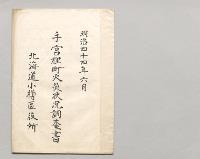 明治四十四年六月
手宮裡町火災状況調査書
北海道小樽区役所